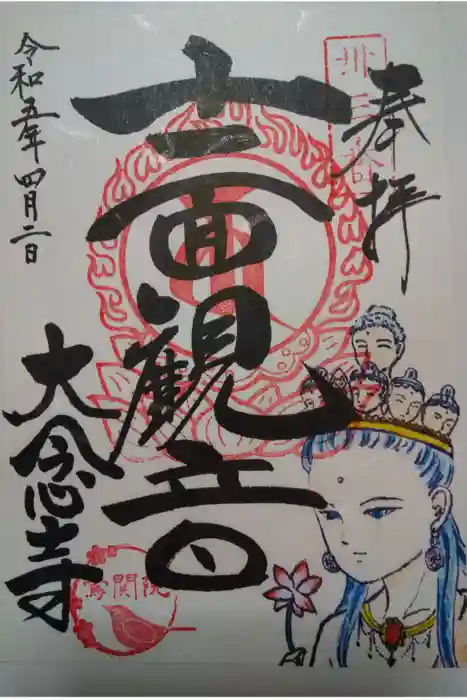 奉拝
十一面観音
大念寺
令和五年四月二日
関院